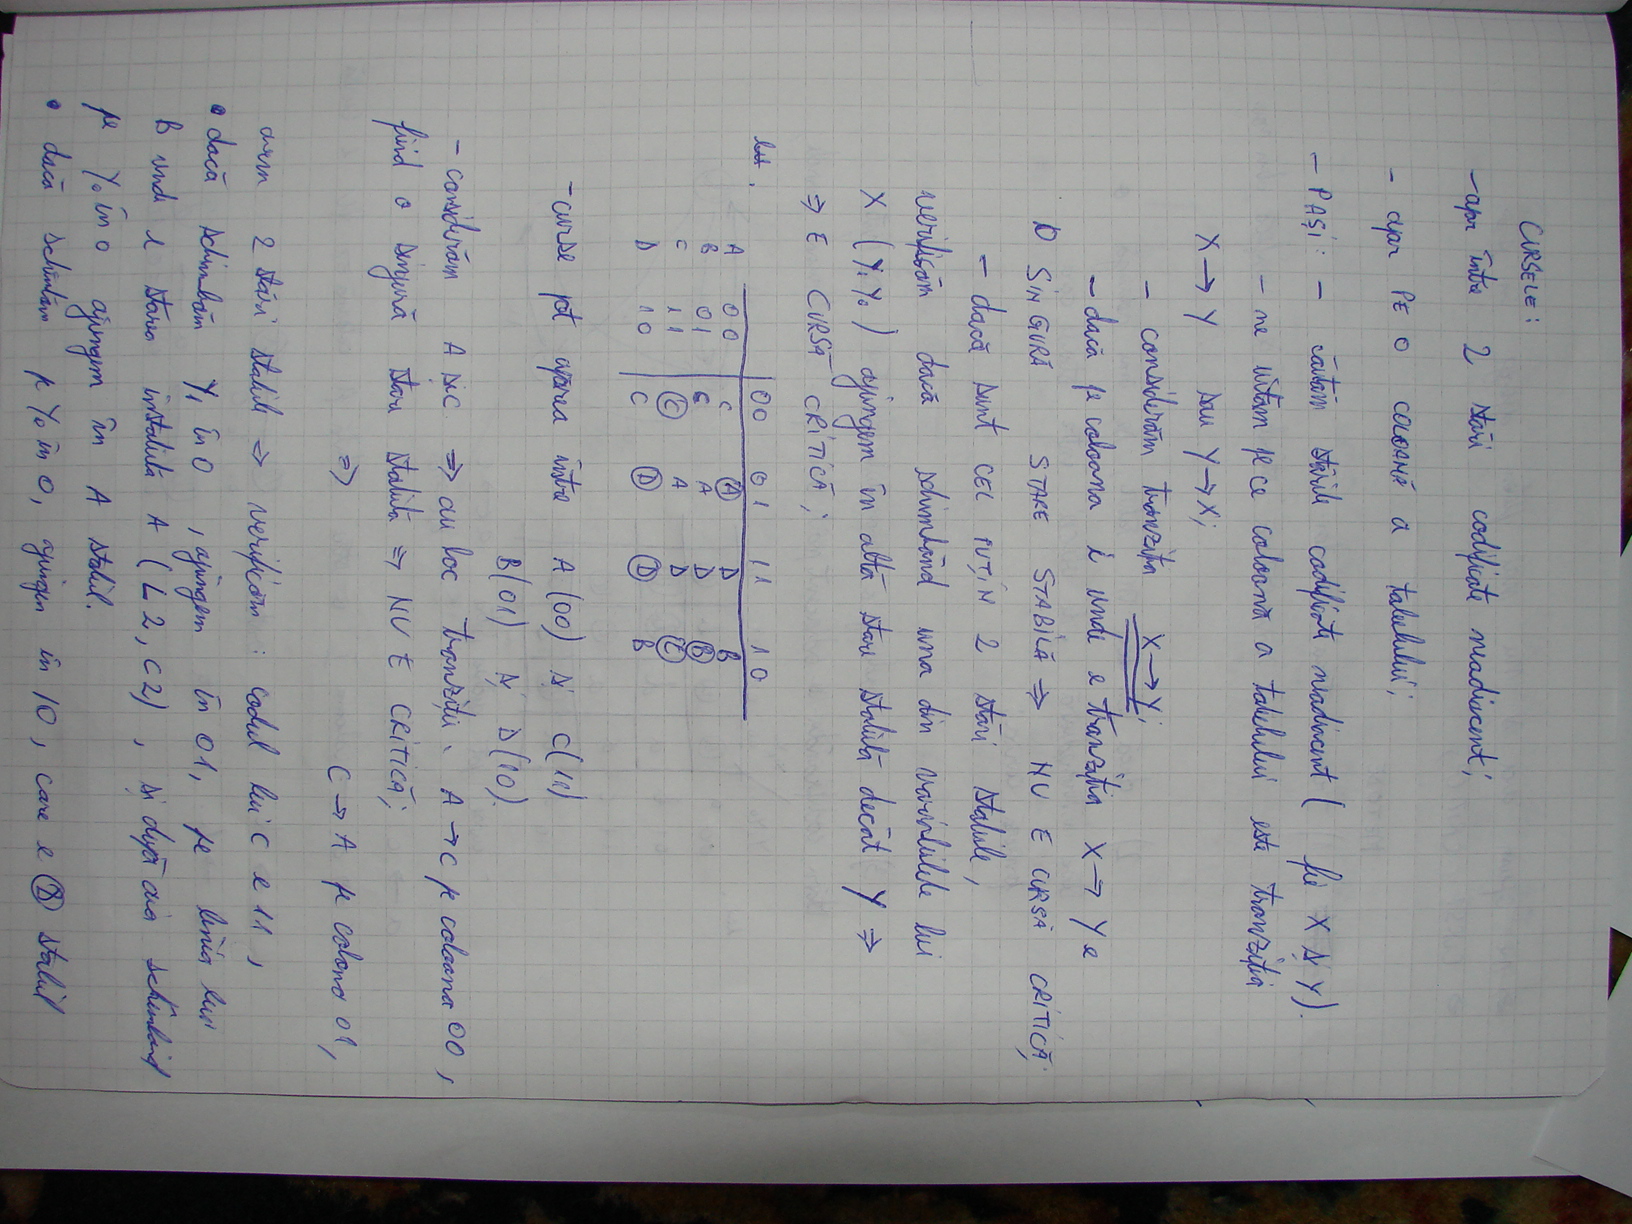 CURSELE:
- apar între 2 stări codificate neadiacent;
- apar PE O COLOANĂ a tabelului;
- PAŞI: - căutăm stările codificate neadiacent ( fie X şi Y).
- ne uităm pe ce coloană a tabelului este tranziţia
X → Y sau Y → X;
- considerăm tranziţia X → Y;
- dacă pe coloana i unde e tranziţia X → Y e
O SINGURĂ STARE STABILĂ ⇒ NU E CURSĂ CRITICĂ;
- dacă sunt CEL PUŢIN 2 stări stabile,
verificăm dacă schimbând una din variabilele lui
X (Y1 Y0) ajungem în altă stare stabilă decât Y ⇒
⇒ E CURSĂ CRITICĂ;
00 01 11 10
A 00 C (A) D B
B 01 C A D (B)
C 11 (C) A D (C)
D 10 C (D) (D) B
- curse pot apărea între A (00) şi C (11)
B (01) şi D (10).
- considerăm A şi C ⇒ au loc tranziţii: A → C pe coloana 00,
fiind o singură stare stabilă ⇒ NU E CRITICĂ;
⇒ C → A pe coloana 01,
avem 2 stări stabile ⇒ verificăm: codul lui C e 11,
• dacă schimbăm Y1 în 0, ajungem în 01, pe linia lui
B unde e starea instabilă A (L2, C2), şi după aia schimbând
pe Y0 în 0 ajungem în A stabil.
• dacă schimbăm pe Y0 în 0, ajungem în 10, care e (D) stabil